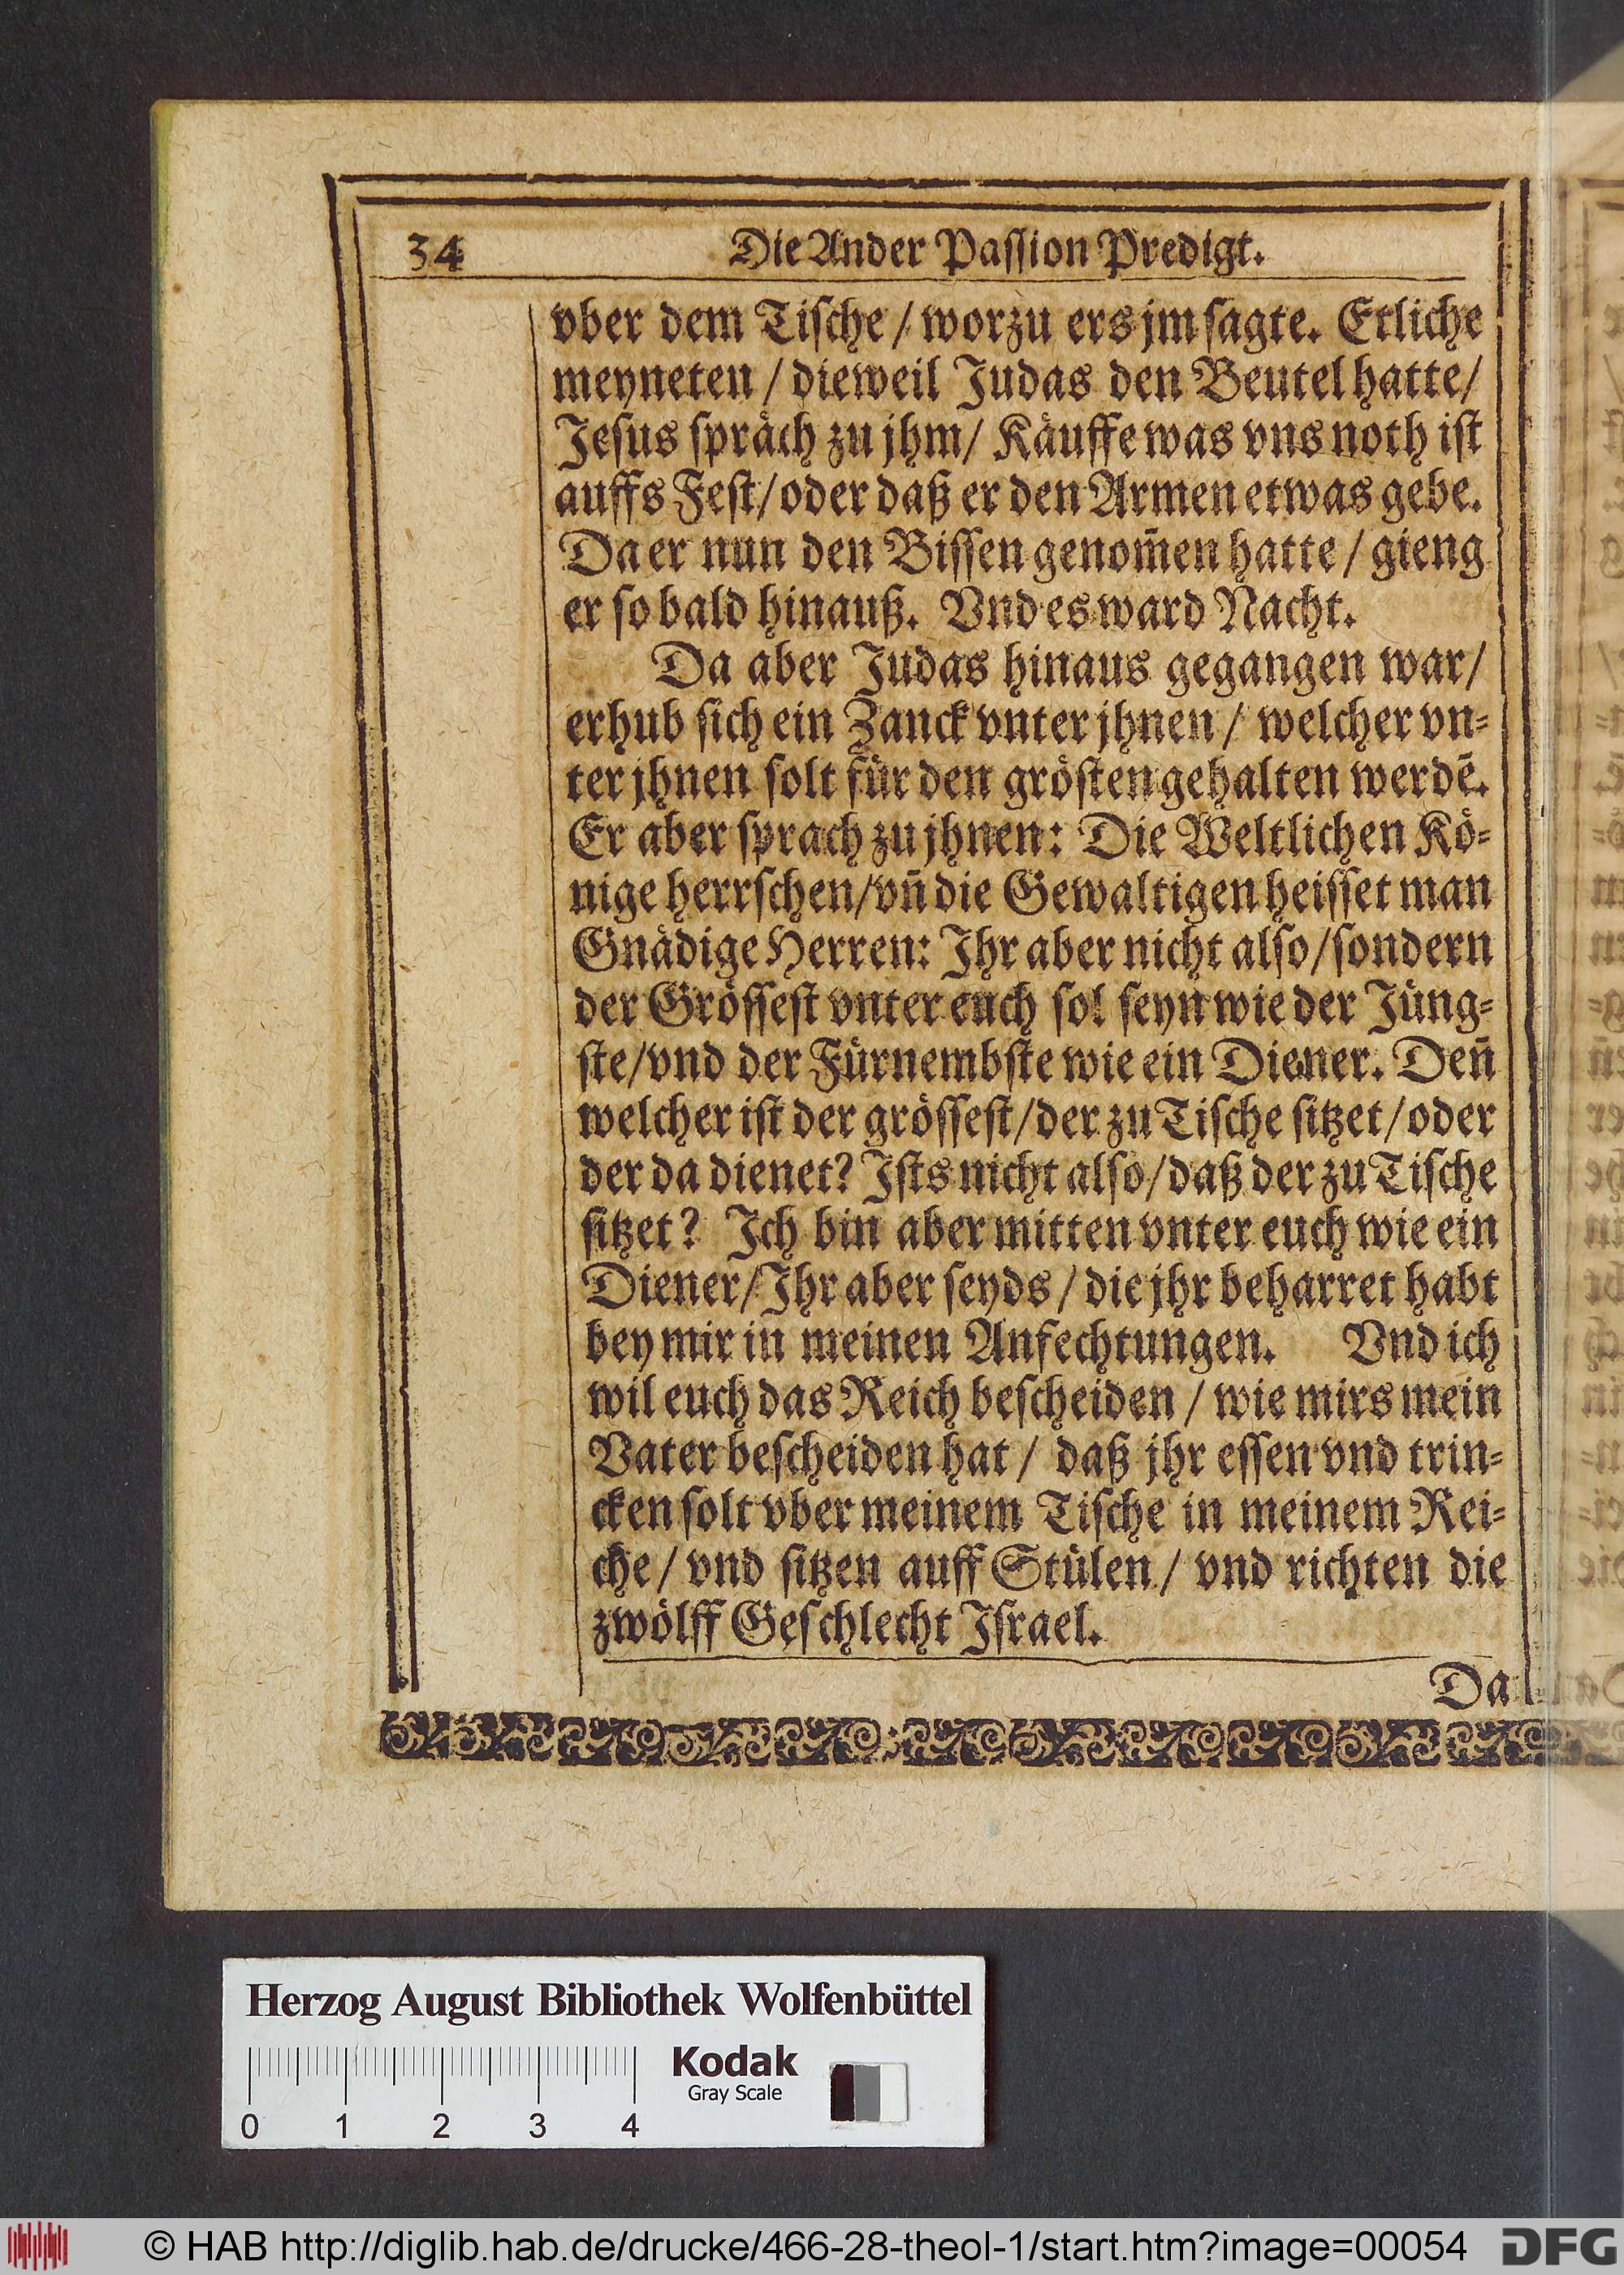 34 Die Ander Passion Predigt.
vber dem Tische / worzu ers jm sagte. Etliche
meyneten / dieweil Judas den Beutel hatte /
Jesus spräch zu jhm / Käuffe was vns noth ist
auffs Fest / oder daß er den Armen etwas gebe.
Da er nun den Bissen genom̃en hatte / gieng
er so bald hinauß. Vnd es ward Nacht.
Da aber Judas hinaus gegangen war /
erhub sich ein Zanck vnter jhnen / welcher vn-
ter jhnen solt für den grösten gehalten werdẽ.
Er aber sprach zu jhnen: Die Weltlichen Kö-
nige herrschen / vñ die Gewaltigen heisset man
Gnädige Herren: Ihr aber nicht also / sondern
der Grössest vnter euch sol seyn wie der Jüng-
ste / vnd der Fürnembste wie ein Diener. Deñ
welcher ist der grössest / der zu Tische sitzet / oder
der da dienet? Ists nicht also / daß der zu Tische
sitzet? Ich bin aber mitten vnter euch wie ein
Diener / Ihr aber seyds / die jhr beharret habt
bey mir in meinen Anfechtungen. Vnd ich
wil euch das Reich bescheiden / wie mirs mein
Vater bescheiden hat / daß jhr essen vnd trin-
cken solt vber meinem Tische in meinem Rei-
che / vnd sitzen auff Stülen / vnd richten die
zwölff Geschlecht Israel.
Da
Herzog August Bibliothek Wolfenbüttel
Kodak
Gray Scale
0 1 2 3 4
© HAB http://diglib.hab.de/drucke/466-28-theol-1/start.htm?image=00054 DFG